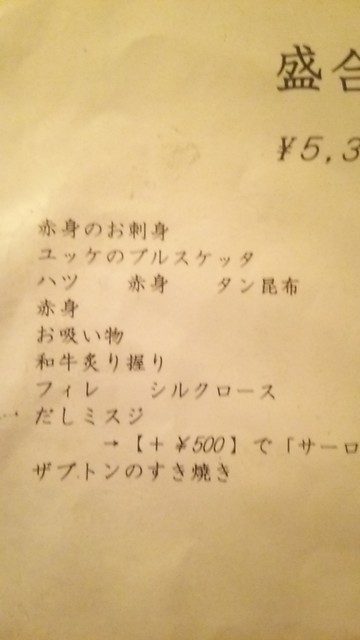 盛合
¥5,3
赤身のお刺身
ユッケのブルスケッタ
ハツ　赤身　タン昆布
赤身
お吸い物
和牛炙り握り
フィレ　シルクロース
だしミスジ
→【+ ¥500】で「サーロ
ザブトンのすき焼き